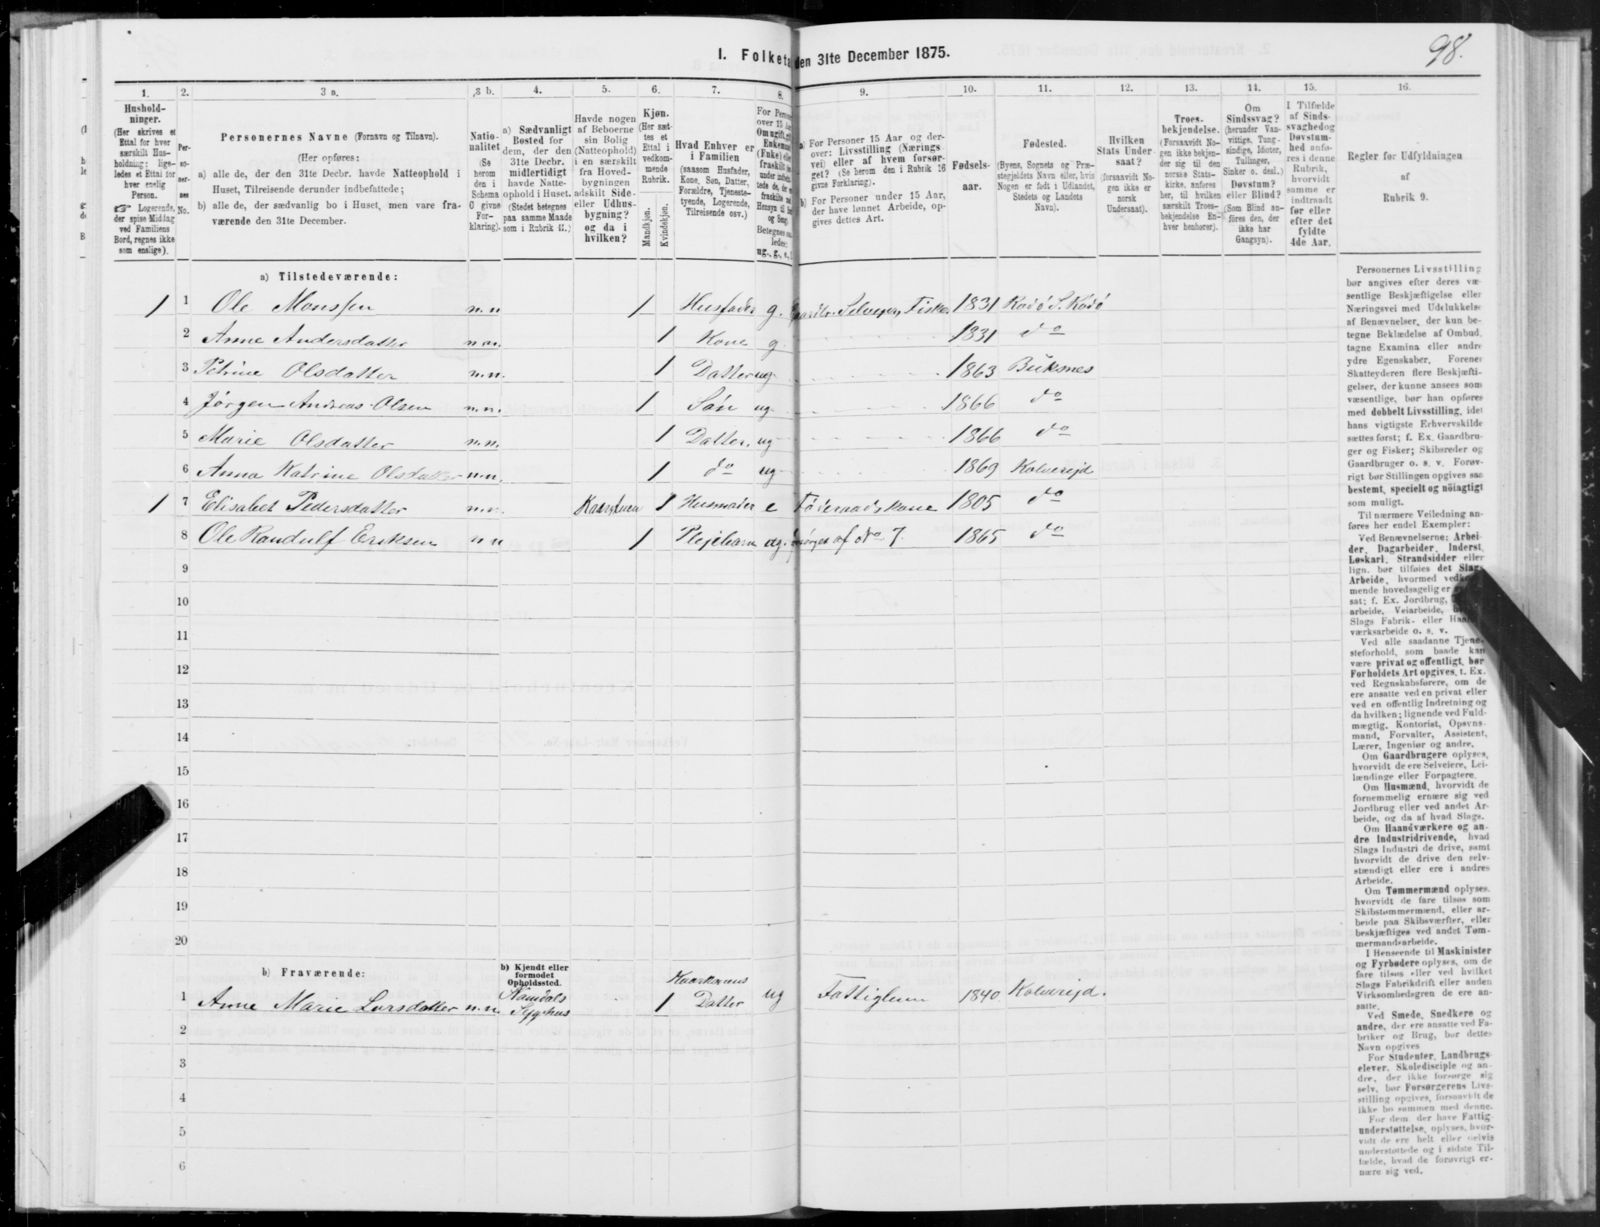 98.
I. Folketæ
den 31te December 1875.
1. 2. 3 a. 3 b. 4. 5. 6. 7. 8. 9. 10. 11. 12. 13. 14. 15. 16.
Hushold-
ninger.
(Her skrives et
Ettal for hver
særskilt Hus-
holdning; lige-
ledes et Ettal for
hver enslig
Person.
☞ Logerende,
der spise Middag
ved Familiens
Bord, regnes ikke
som enslige).
Per-
so-
ner-
nes
No.
Personernes Navne (Fornavn og Tilnavn).
(Her opføres:
a) alle de, der den 31te Decbr. havde Natteophold i
Huset, Tilreisende derunder indbefattede;
b) alle de, der sædvanlig bo i Huset, men vare fra-
værende den 31te December.
Natio-
nalitet
(Se
herom
den i
Schema
C givne
For-
klaring).
a) Sædvanligt
Bosted for
dem, der den
31te Decbr.
midlertidigt
havde Natte-
ophold i Huset.
(Stedet betegnes
paa samme Maade
som i Rubrik 11.)
Havde nogen
af Beboerne
sin Bolig
(Natteophold)
i en særskilt
fra Hoved-
bygningen
adskilt Side-
eller Udhus-
bygning?
og da i
hvilken?
Kjøn.
(Her sæt-
tes et
Ettal i
vedkom-
mende
Rubrik.
Mandkjøn.
Kvindekjøn.
Hvad Enhver er
i Familien
(saasom Husfader,
Kone, Søn, Datter,
Forældre, Tjeneste-
tyende, Logerende,
Tilreisende osv.)
a) For Personer 15 Aar og der-
over: Livsstilling (Nærings-
vei) eller af hvem forsør-
get? (Se herom den i Rubrik 16
givne Forklaring).
b) For Personer under 15 Aar,
der have lønnet Arbeide, op-
gives dettes Art.
Fødsels-
aar.
Fødested.
(Byens, Sognets og Præ-
stegjeldets Navn eller, hvis
Nogen er født i Udlandet,
Stedets og Landets
Navn).
Hvilken
Stats Under-
saat?
(forsaavidt No-
gen ikke er
norsk
Undersaat).
Troes-
bekjendelse.
(Forsaavidt No-
gen ikke bekjen-
der sig til den
norske Stats-
kirke, anføres
her, til hvilken
særskilt Troes-
bekjendelse En-
hver henhører).
Om
Sindssvag?
(herunder Van-
vittige, Tung-
sindige, Idioter,
Tullinger,
Sinker o. desl.)
Døvstum?
eller Blind?
(Som Blind an-
føres den, der
ikke har
Gangsyn).
I Tilfælde
af Sinds-
svaghed og
Døvstum-
hed anfø-
res i denne
Rubrik,
hvorvidt
samme er
indtraadt
før eller
efter det
fyldte
4de Aar.
Regler før Udfyldningen
af
Rubrik 9.
a) Tilstedeværende:
1 1 Ole Monssen n.n 1 Husfader g. Gaardbr. Selveier, Fisker 1831 Rødø S. Rødø
2 Anne Andersdatter n.n. 1 Kone g 1831 do
3 Petrine Olsdatter n.n. 1 Datter ug 1863 Buksnes
4 Jørgen Andreas Olsen n.n. 1 Søn ug 1866 do
5 Marie Olsdatter n.n. 1 Datter ug 1866 do
6 Anna Katrine Olsdatter n.n. 1 do ug 1869 Kolvereid
1 7 Elisabet Pedersdatter n.n. 1 Husmoder e Föderaadskone 1805 do
8 Ole Randulf Eriksen n n 1 Plejebarn ug. forsørges af No 7. 1865 do
9
10
11
12
13
14
15
16
17
18
19
20
b) Fraværende:
b) Kjendt eller
formodet
Opholdssted.
1 Anne Marie Larsdatter n.n. Namdals Sygehus 1 Datter ug Fattiglem 1840 Kolvereid.
2
3
4
5
6
Personernes Livsstilling
bør angives efter deres væ-
sentlige Beskjæftigelse eller
Næringsvei med Udelukkelse
af Benævnelser, der kun be-
tegne Beklædelse af Ombud,
tagne Examina eller andre
ydre Egenskaber. Forener
Skatteyderen flere Beskjæfti-
gelser, der kunne ansees som
væsentlige, bør han opføres
med dobbelt Livsstilling, idet
hans vigtigste Erhvervskilde
sættes først; f. Ex. Gaardbru-
ger og Fisker; Skibsreder og
Gaardbruger o. s. v. Forøv-
rigt bør Stillingen opgives saa
bestemt, specielt og nöiagtigt
som muligt.
Til nærmere Veiledning an-
føres her endel Exempler:
Ved Benævnelserne: Arbei-
der, Dagarbeider, Inderst,
Løskarl, Strandsidder eller
lign. bør tilføies det Slags
Arbeide, hvormed
mende hovedsagelig er
sat; f. Ex. Jordbrug,
arbeide, Veiarbeide,
Slags Fabrik- eller Haand-
værksarbeide o. s. v.
Ved alle saadanne Tjene-
steforhold, som baade kan
være privat og offentligt, bør
Forholdets Art opgives, t. Ex.
ved Regnskabsførere, om de
ere ansatte ved en privat eller
ved en offentlig Indretning og
da hvilken; lignende ved Fuld-
mægtig, Kontorist, Opsyns-
mand, Forvalter, Assistent,
Lærer, Ingeniør og andre.
Om Gaardbrugere oplyses,
hvorvidt de ere Selveiere, Lei-
lændinge eller Forpagtere.
Om Husmænd, hvorvidt de
fornemmelig ernære sig ved
Jordbrug eller ved andet Ar-
beide, og da af hvad Slags.
Om Haandværkere og an-
dre Industridrivende, hvad
Slags Industri de drive, samt
hvorvidt de drive den selv-
stændigt eller ere i andres
Arbeide.
Om Tømmermænd oplyses,
hvorvidt de fare tilsøs som
Skibstømmermænd, eller ar-
beide paa Skibsværfter, eller
beskjæftiges ved andet Tøm-
mermandsarbeide.
I Henseende til Maskinister
og Fyrbødere oplyses, om de
fare tilsøs eller ved hvilket
Slags Fabrikdrift eller anden
Virksomhedsgren de ere an-
satte.
Ved Smede, Snedkere og
andre, der ere ansatte ved Fa-
briker og Brug, bør dettes
Navn opgives
For Studenter, Landbrugs-
elever, Skoledisciple og an-
dre, der ikke forsørge sig
selv, bør Forsørgerens Livs-
stilling opgives, forsaavidt de
ikke bo sammen med denne.
For dem, der have Fattig-
understøttelse, oplyses, hvor-
vidt de ere helt eller delvis
understøttede og i sidste Til-
fælde, hvad de forøvrigt er-
nære sig ved.